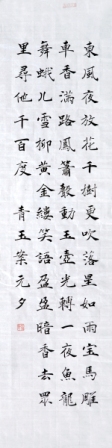 東風夜放花千樹更吹落星如雨宝馬雕
車香滿路鳳簫聲動玉壺光轉一夜魚龍
舞蛾儿雪柳黃金縷笑語盈盈暗香去眾
里尋他千百度 青玉案元夕